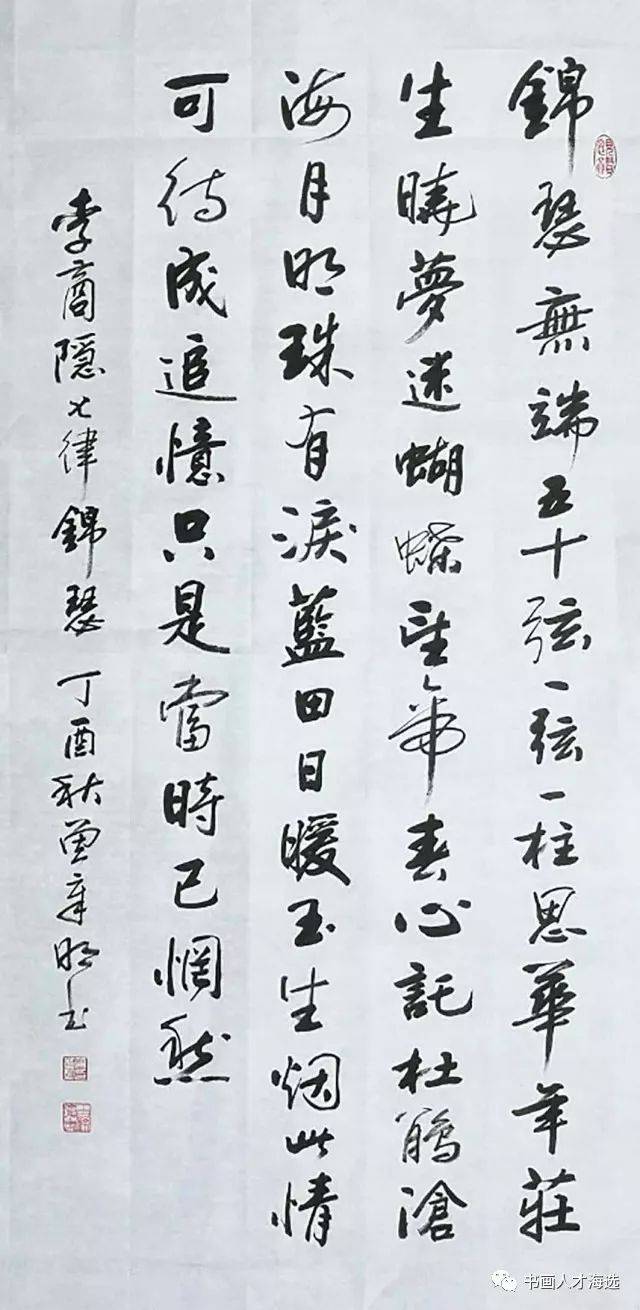 錦瑟無端五十弦一弦一柱思華年莊
生曉夢迷蝴蝶望帝春心託杜鵑滄
海月明珠有淚藍田日暖玉生烟此情
可待成追憶只是當時已惘然
李商隐七律錦瑟 丁酉秋曾章明书
书画人才海选